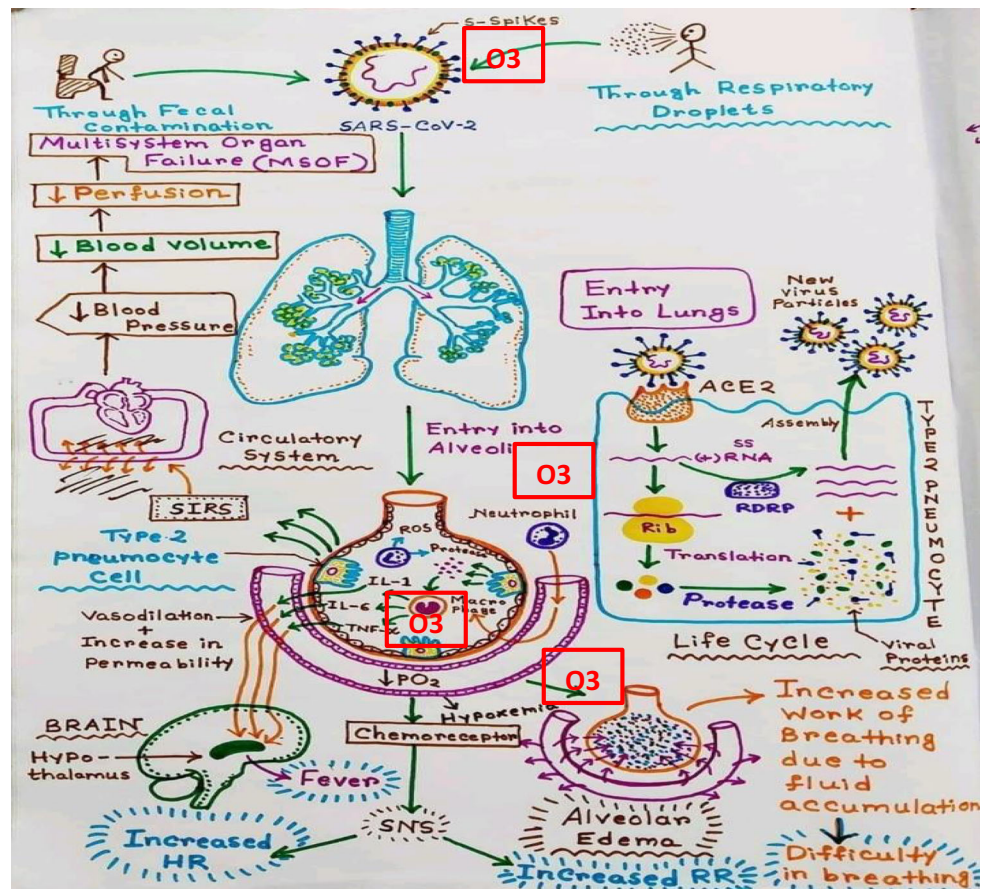 S-Spikes
O3
Through Fecal
Contamination
SARS-CoV-2
Through Respiratory
Droplets
Multisystem Organ
Failure (MSOF)
↓ Perfusion
↓ Blood volume
↓ Blood
Pressure
Circulatory
System
SIRS
Entry
Into Lungs
New
Virus
Particles
ACE2
Assembly
SS
(+)RNA
RDRP
Rib
+
Translation
Protease
TYPE2 PNEUMOCYTE
Life Cycle
Viral
Proteins
Entry into
Alveoli
O3
Neutrophil
Type-2
Pneumocyte
Cell
ROS
Protease
IL-1
IL-6
Macro
phage
TNF-
O3
Vasodilation
+
Increase in
Permeability
↓PO2
O3
Hypoxemia
Chemoreceptor
BRAIN
Hypo-
thalamus
Fever
SNS
Increased
HR
Increased RR
Alveolar
Edema
Increased
Work of
Breathing
due to
fluid
accumulation
Difficulty
in breathing